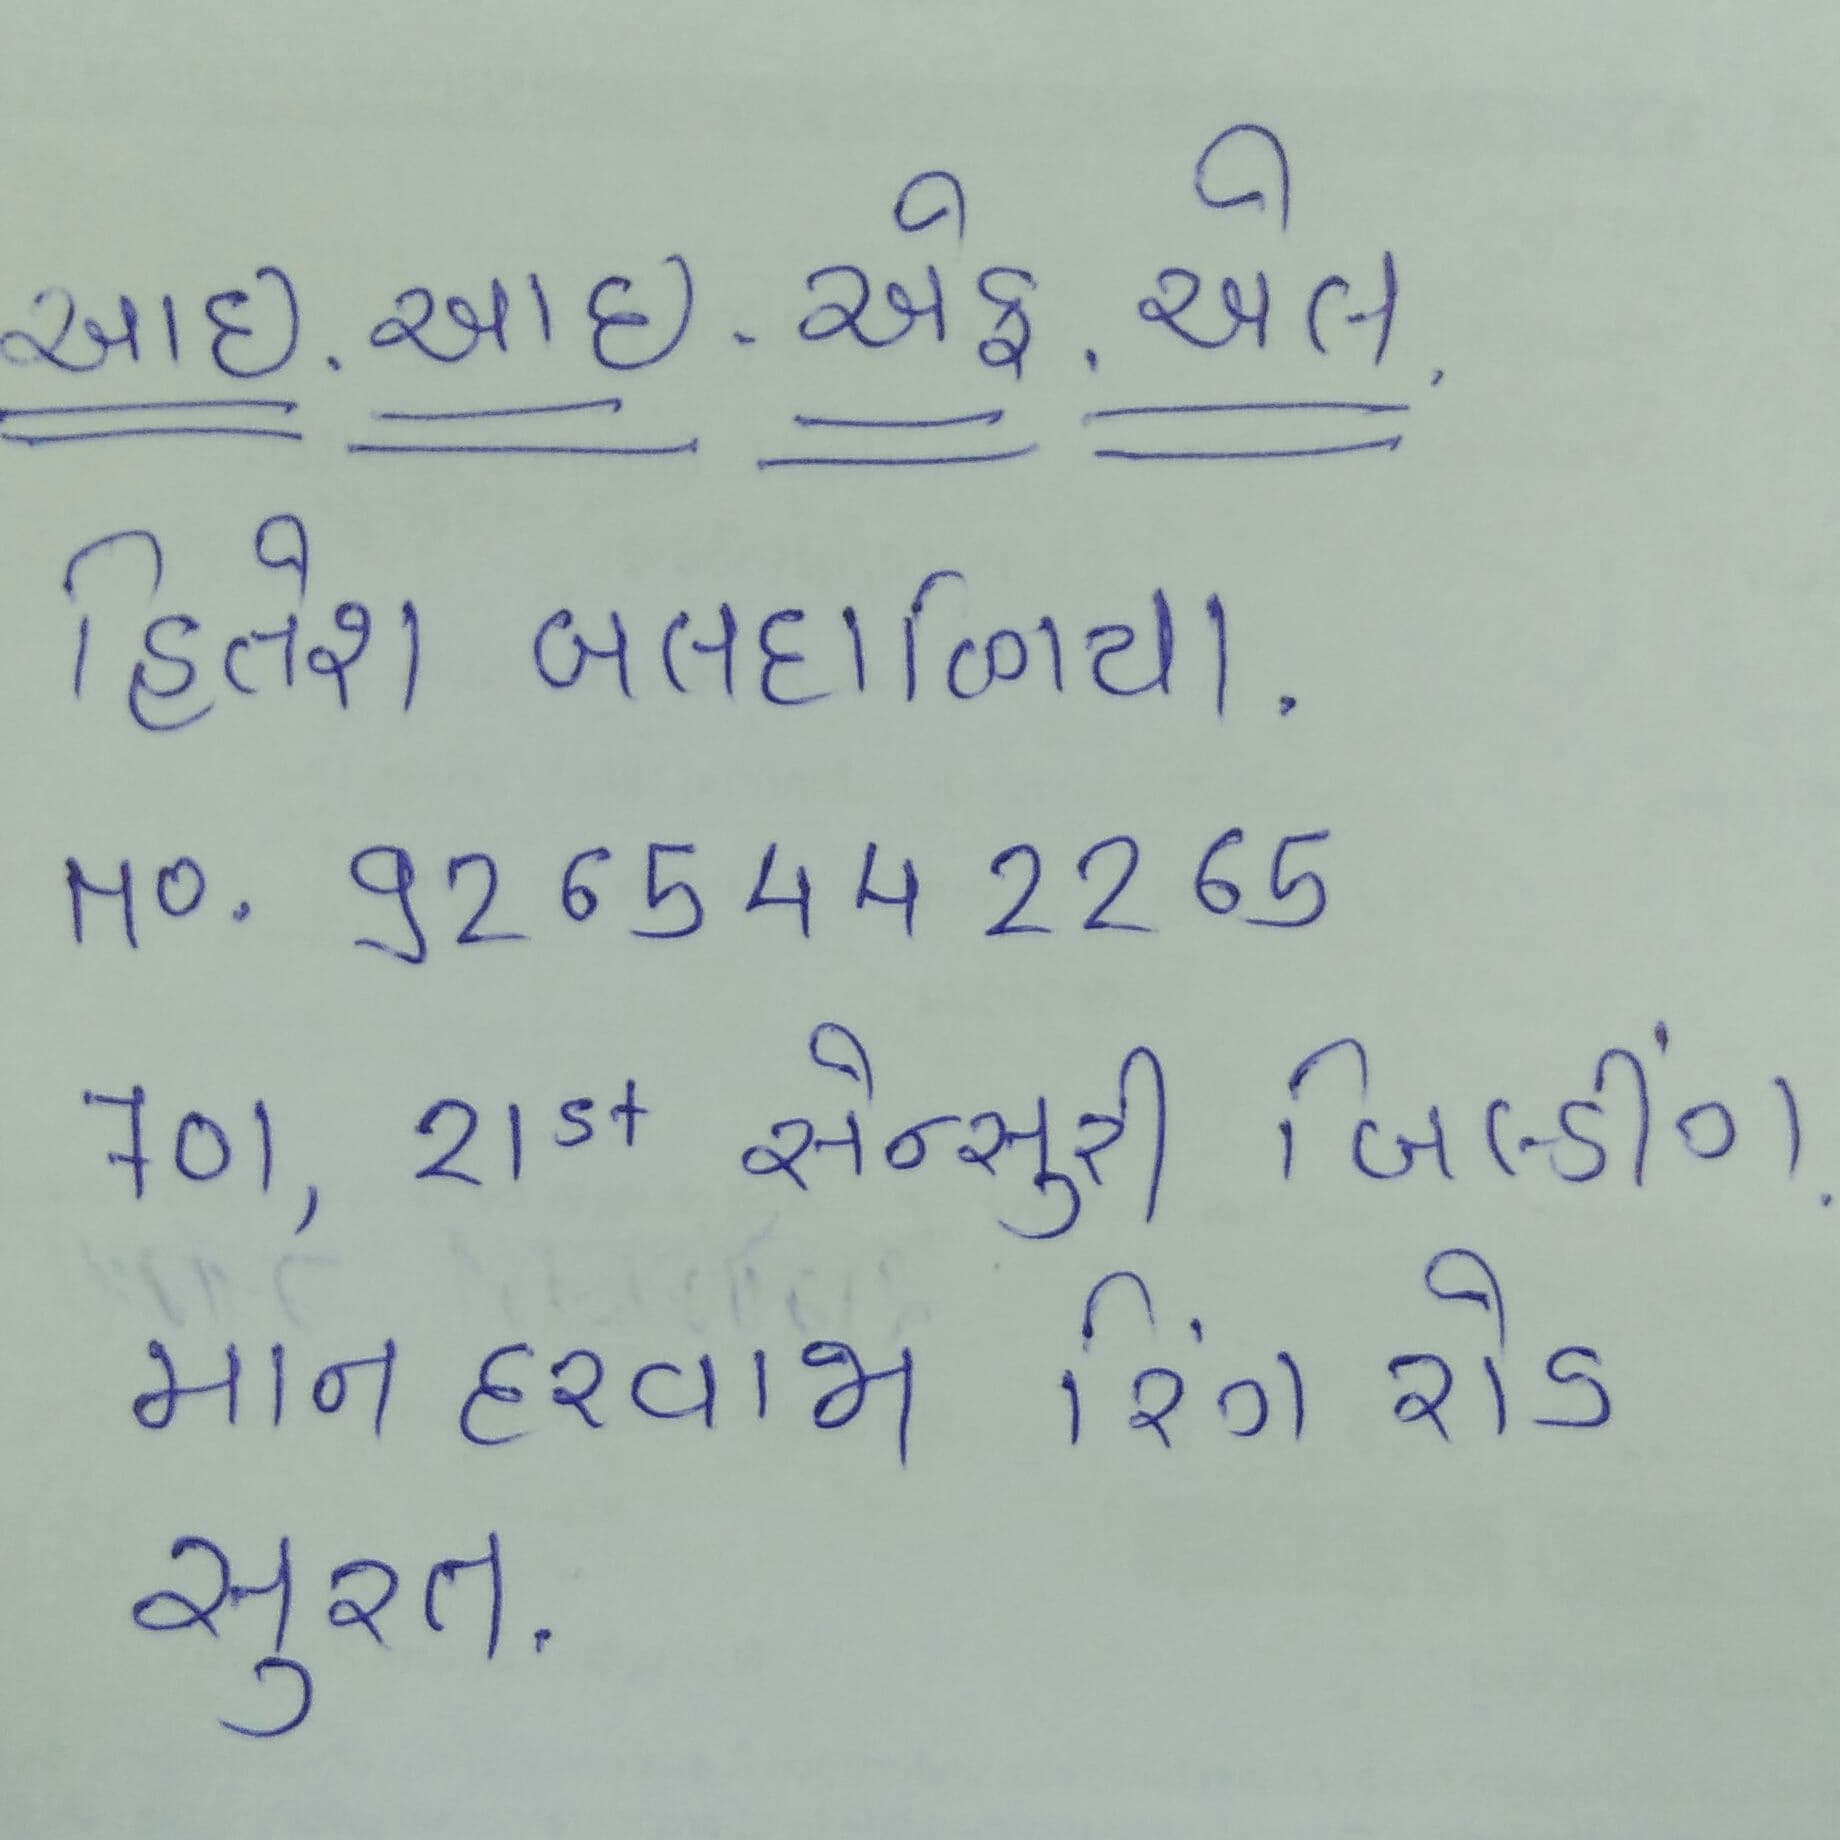 આઇ. આઇ. એફ. એલ.
હિતેશ બલદાણિયા.
Mo. 9265442265
701, 21st સેન્સુરી બિલ્ડીંગ.
માન દરવાજા રિંગ રોડ
સુરત.